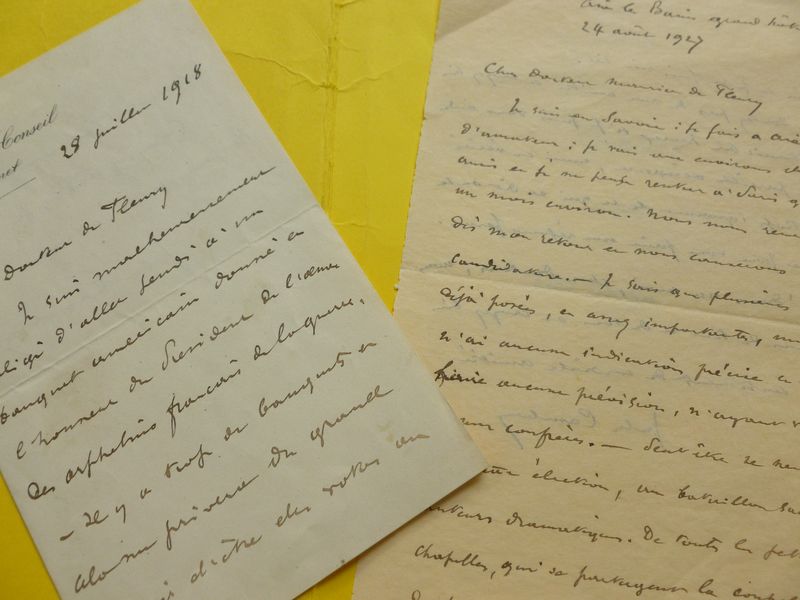 Conseil
28 juillet 1918
Docteur de Fleury
Je suis malheureusement
obligé d'aller jeudi à un
banquet américain donné en
l'honneur du Président de l'œuvre
des orphelins français de la guerre,
- Il y a trop de banquets et
cela me privera du grand
d'être des vôtres au
Aix les Bains grand hôtel
24 août 1927
Cher docteur Maurice de Fleury
Je suis en Savoie : je fais à Aix
d'amateur : je vais aux environs
amis et je ne pense rentrer à Paris
un mois environ. Nous nous
dès mon retour et nous causerons
candidature. - Je sais que plusieurs
déjà posées, et assez importantes,
n'ai aucune indication précise et
faire aucune prévision, n'ayant
confrères. - Peut être se
élection, un bataillon
auteurs dramatiques. De toutes les
chapelles, qui se partagent la